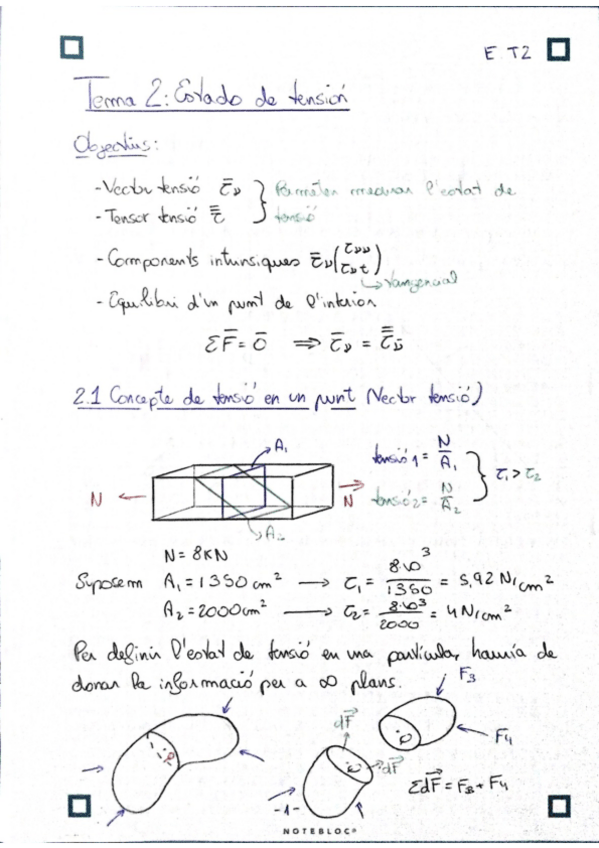 E T2
Tema 2: Estado de tensión
Objectius:
- Vector tensió τ̄ν } Permeten mesurar l'estat de
- Tensor tensió τ̿ } tensió
- Components intrínsiques τ̄ν (τνν
τνt)
↳ tangencial
- Equilibri d'un punt de l'interior
ΣF̄ = 0̄ ⇒ τ̄ν = τ̿ν̄
2.1 Concepte de tensió en un punt (Vector tensió)
A₁
tensió 1 = N/A₁ } τ₁ > τ₂
N N
tensió 2 = N/A₂
A₂
N = 8KN
Suposem A₁ = 1350 cm² → τ₁ = 8·10³/1350 = 5,92 N/cm²
A₂ = 2000 cm² → τ₂ = 8·10³/2000 = 4 N/cm²
Per definir l'estat de tensió en una partícula, hauria de
donar la informació per a ∞ plans.
F₃
dF⃗
F₄
dF⃗
ΣdF⃗ = F₃ + F₄
-1-
NOTEBLOC®